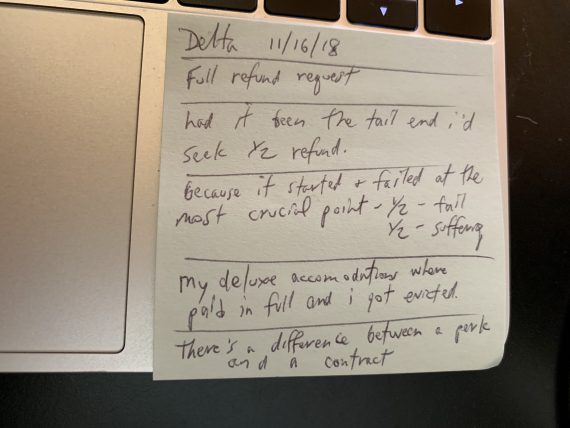 Delta 11/16/18
Full refund request
had it been the tail end i'd
seek 1/2 refund.
because it started + failed at the
most crucial point - 1/2 - fail
1/2 - suffering
my deluxe accomodations where
paid in full and i got evicted.
There's a difference between a perk
and a contract